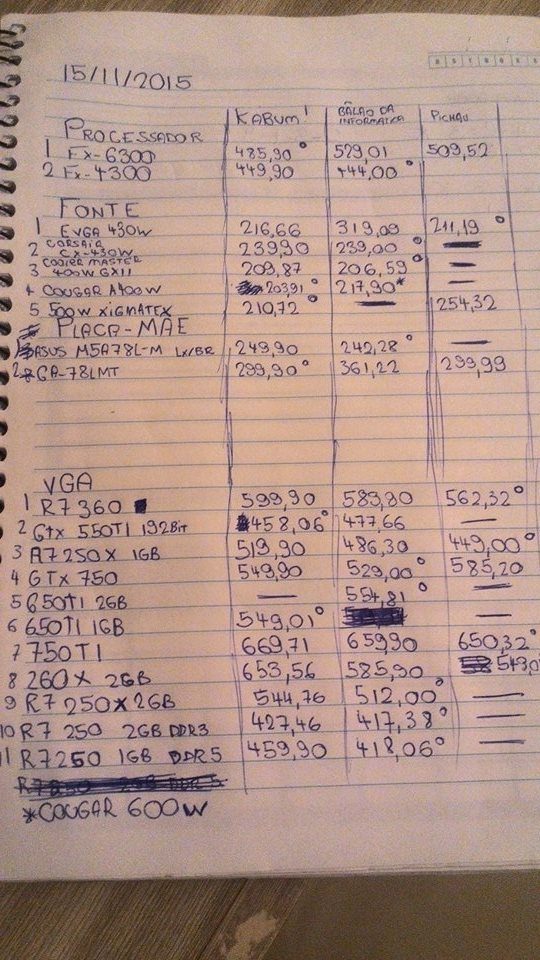 15/11/2015
KABUM! BÃLÃO DA INFORMATICA PICHAU
PROCESSADOR
1 FX-6300 485,90° 529,01 509,52
2 FX-4300 449,90 444,00°
FONTE
1 EVGA 430W 216,66 319,09 211,19°
2 CORSAIR CX-430W 239,90 239,00° —
3 COOLER MASTER 400W GXII 209,87 206,59° —
4 COUGAR A400W 203,91° 217,90* —
5 500W XIGMATEX 210,72° — 254,32
PLACA-MAE
1 ASUS M5A78L-M LX/BR 249,90 242,28° —
2 GA-78LMT 299,90° 361,22 299,99
VGA
1 R7 360 599,90 589,90 562,32°
2 Gtx 550TI 192Bit 458,06° 477,66 —
3 A7 250X 1GB 519,90 486,30 449,00°
4 GTX 750 549,90 529,00° 585,20
5 650TI 2GB — 554,81° —
6 650TI 1GB 549,01° —
7 750TI 669,71 659,90 650,32°
8 260X 2GB 653,56 585,90
9 R7 250X 2GB 544,76 512,00° —
10 R7 250 2GB DDR3 427,46 417,38° —
11 R7250 1GB DDR5 459,90 418,06° —
*COUGAR 600W